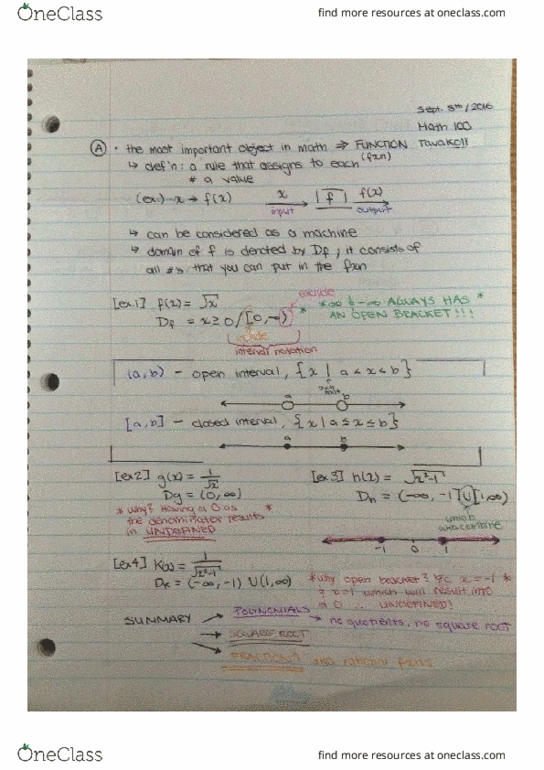 OneClass
find more resources at oneclass.com
Sept. 8th / 2016
Math 100
Tavakoli
(A) • the most important object in math ⇒ FUNCTION (fxn)
↳ def'n: a rule that assigns to each
# a value
(ex:) - x → f(x) x input → | f | f(x) output →
↳ can be considered as a machine
↳ domain of f is denoted by Df ; it consists of
all #s that you can put in the fxn
[ex.1] f(x) = √x
exclude
* ∞ & -∞ ALWAYS HAS *
Df = x ≥ 0 / [0, ∞)
* AN OPEN BRACKET!!!
include
interval notation
(a, b) - open interval, {x | a < x < b}
such that
a b
[a, b] - closed interval, {x | a ≤ x ≤ b}
a b
[ex2] g(x) = 1/√x
[ex3] h(x) = √x²-1
Dg = (0, ∞)
Dh = (-∞, -1] U [1, ∞)
* Why? Having a 0 as *
the denominator results
in UNDEFINED
union
-1 0 1
[ex4] K(x) = 1/√x²-1
Dk = (-∞, -1) U (1, ∞)
* Why open bracket? b/c x = -1 *
& x = 1 which will result into
a 0 ∴ UNDEFINED!
SUMMARY → POLYNOMIALS
↳ no quotients, no square root
→ SQUARE ROOT
→ FRACTIONS aka rational fxns
OneClass
find more resources at oneclass.com